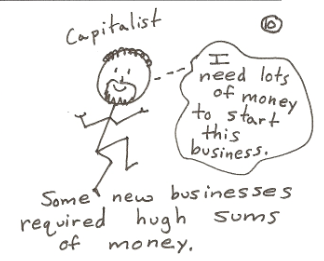 Capitalist
10
I
need lots
of money
to start
this
business.
Some new businesses
required hugh sums
of money.